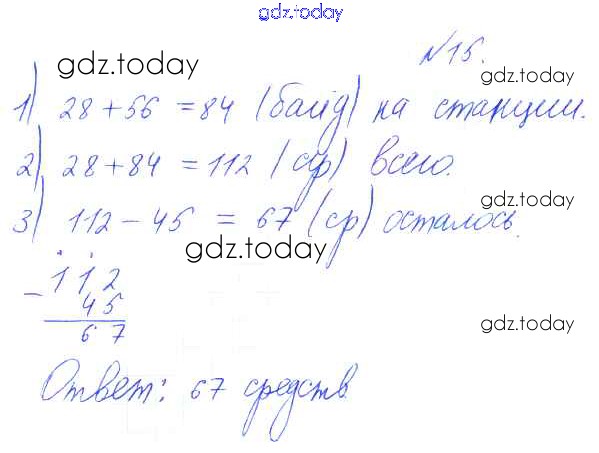 gdz.today
№15.
gdz.today
gdz.today
1) 28+56 =84 (байд) на станции.
2) 28+84 =112 (ср) всего.
gdz.today
3) 112-45 = 67 (ср) осталось.
gdz.today
-112
45
67
gdz.today
Ответ: 67 средств.